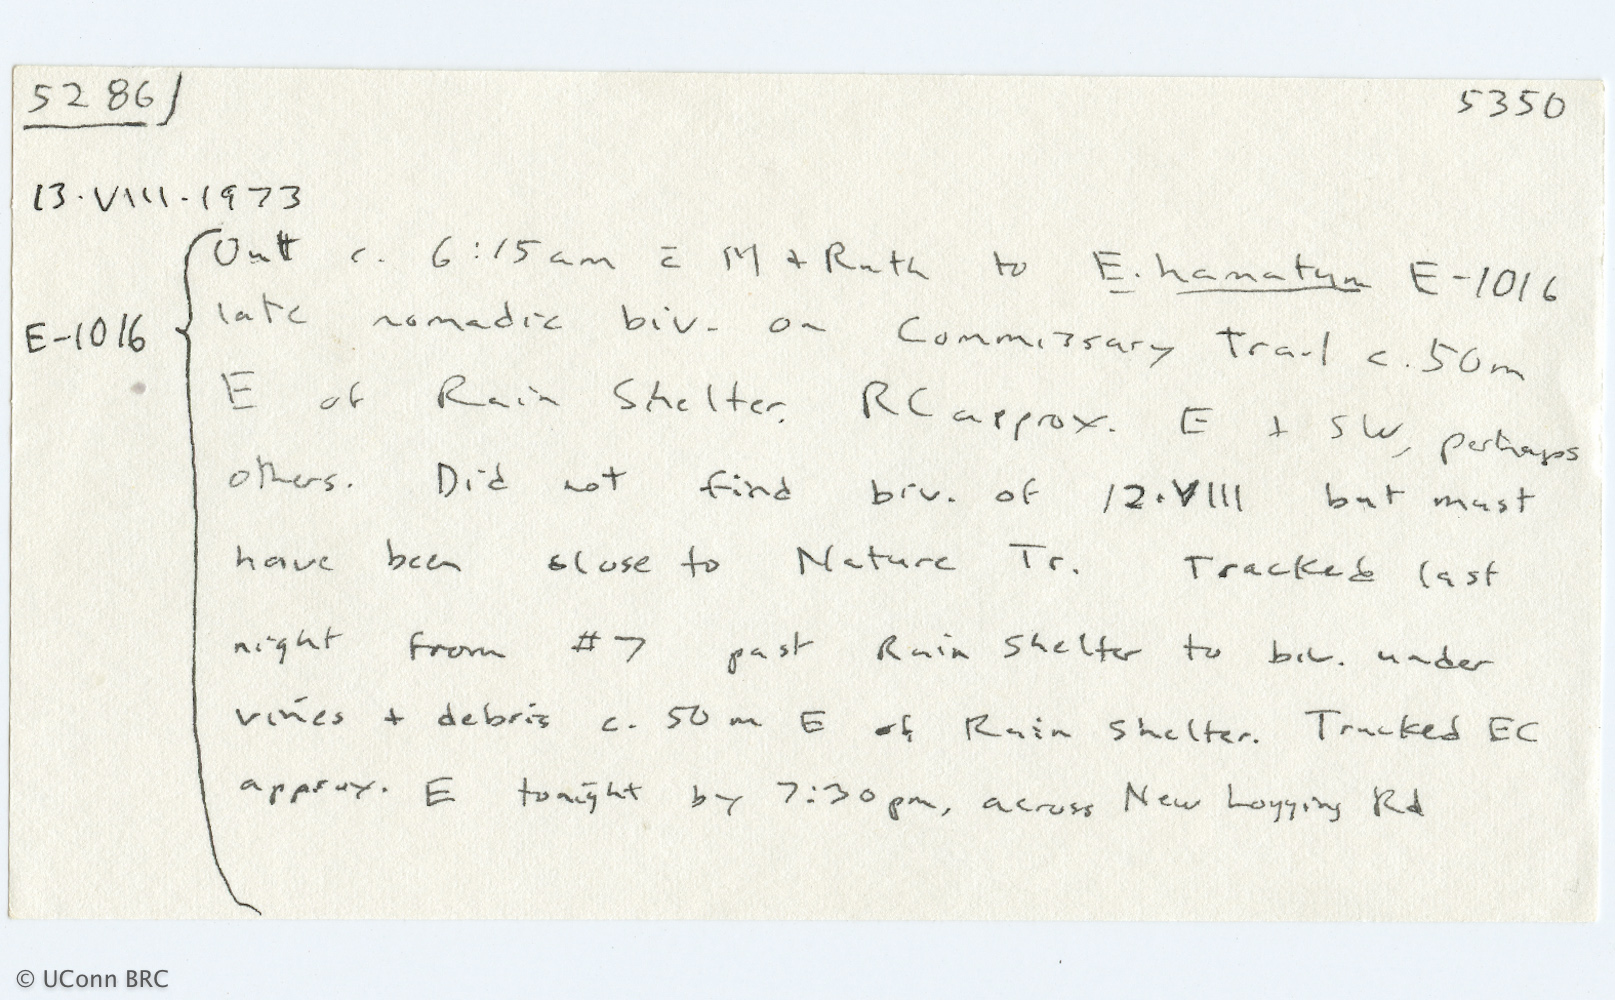 5286 5350
13·VIII·1973
Out c. 6:15am c̄ M + Ruth to E. hamatum E-1016
E-1016 late nomadic biv. on Commissary Trail c. 50m
E of Rain Shelter. RC approx. E + SW, perhaps
others. Did not find biv. of 12·VIII but must
have been close to Nature Tr. Tracked last
night from #7 past Rain Shelter to biv. under
vines + debris c. 50 m E of Rain Shelter. Tracked EC
approx. E tonight by 7:30pm, across New Logging Rd
© UConn BRC